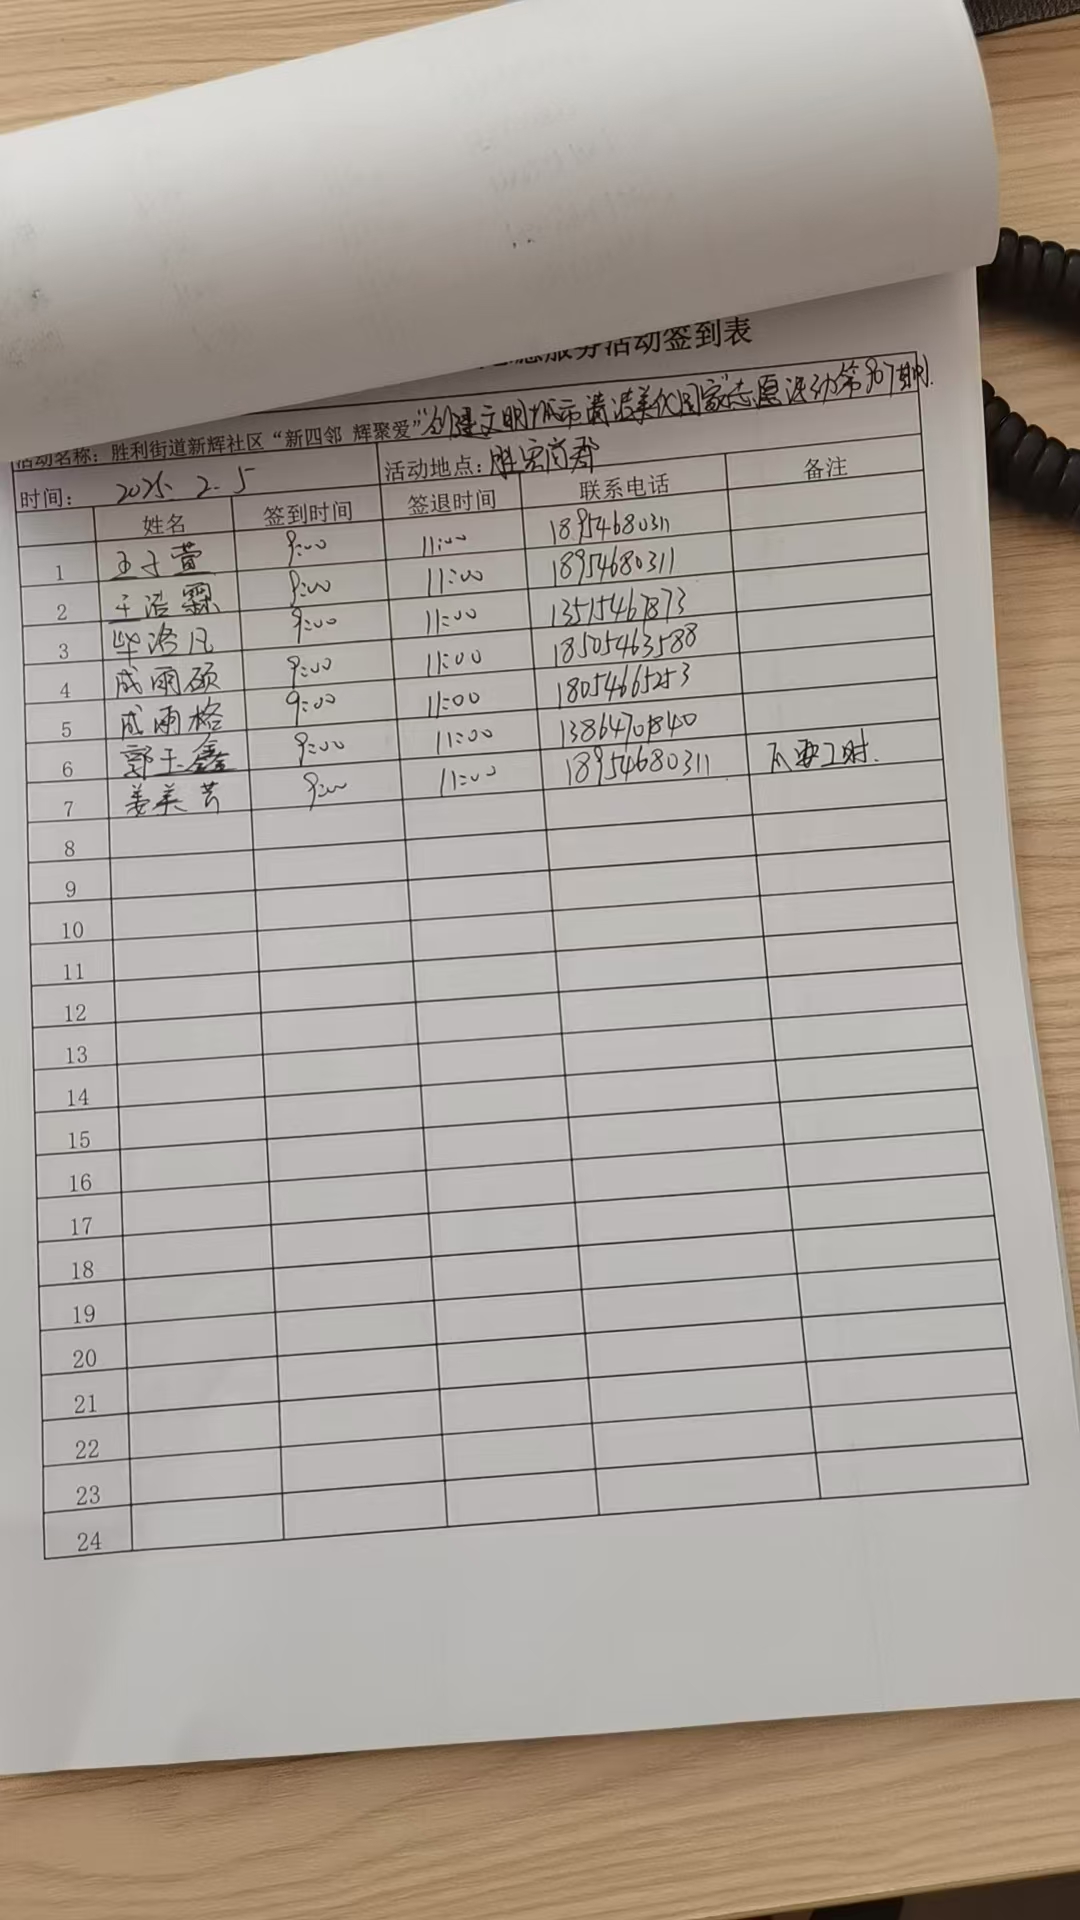 志愿服务活动签到表
活动名称：胜利街道新辉社区“新四邻 辉聚爱”创建文明城市 清洁美化国家志愿活动第 期
时间： 2025. 2. 5 活动地点：胜宏尚郡
姓名 签到时间 签退时间 联系电话 备注
1 王子萱 9:00 11:00 18954680311
2 王浩霖 9:00 11:00 18954680311
3 毕洺凡 9:00 11:00 13515467873
4 成雨硕 9:00 11:00 18505463588
5 成雨格 9:00 11:00 18054665253
6 郭玉鑫 9:00 11:00 13864701840
7 姜美芸 9:00 11:00 18954680311 不要工时.
8
9
10
11
12
13
14
15
16
17
18
19
20
21
22
23
24